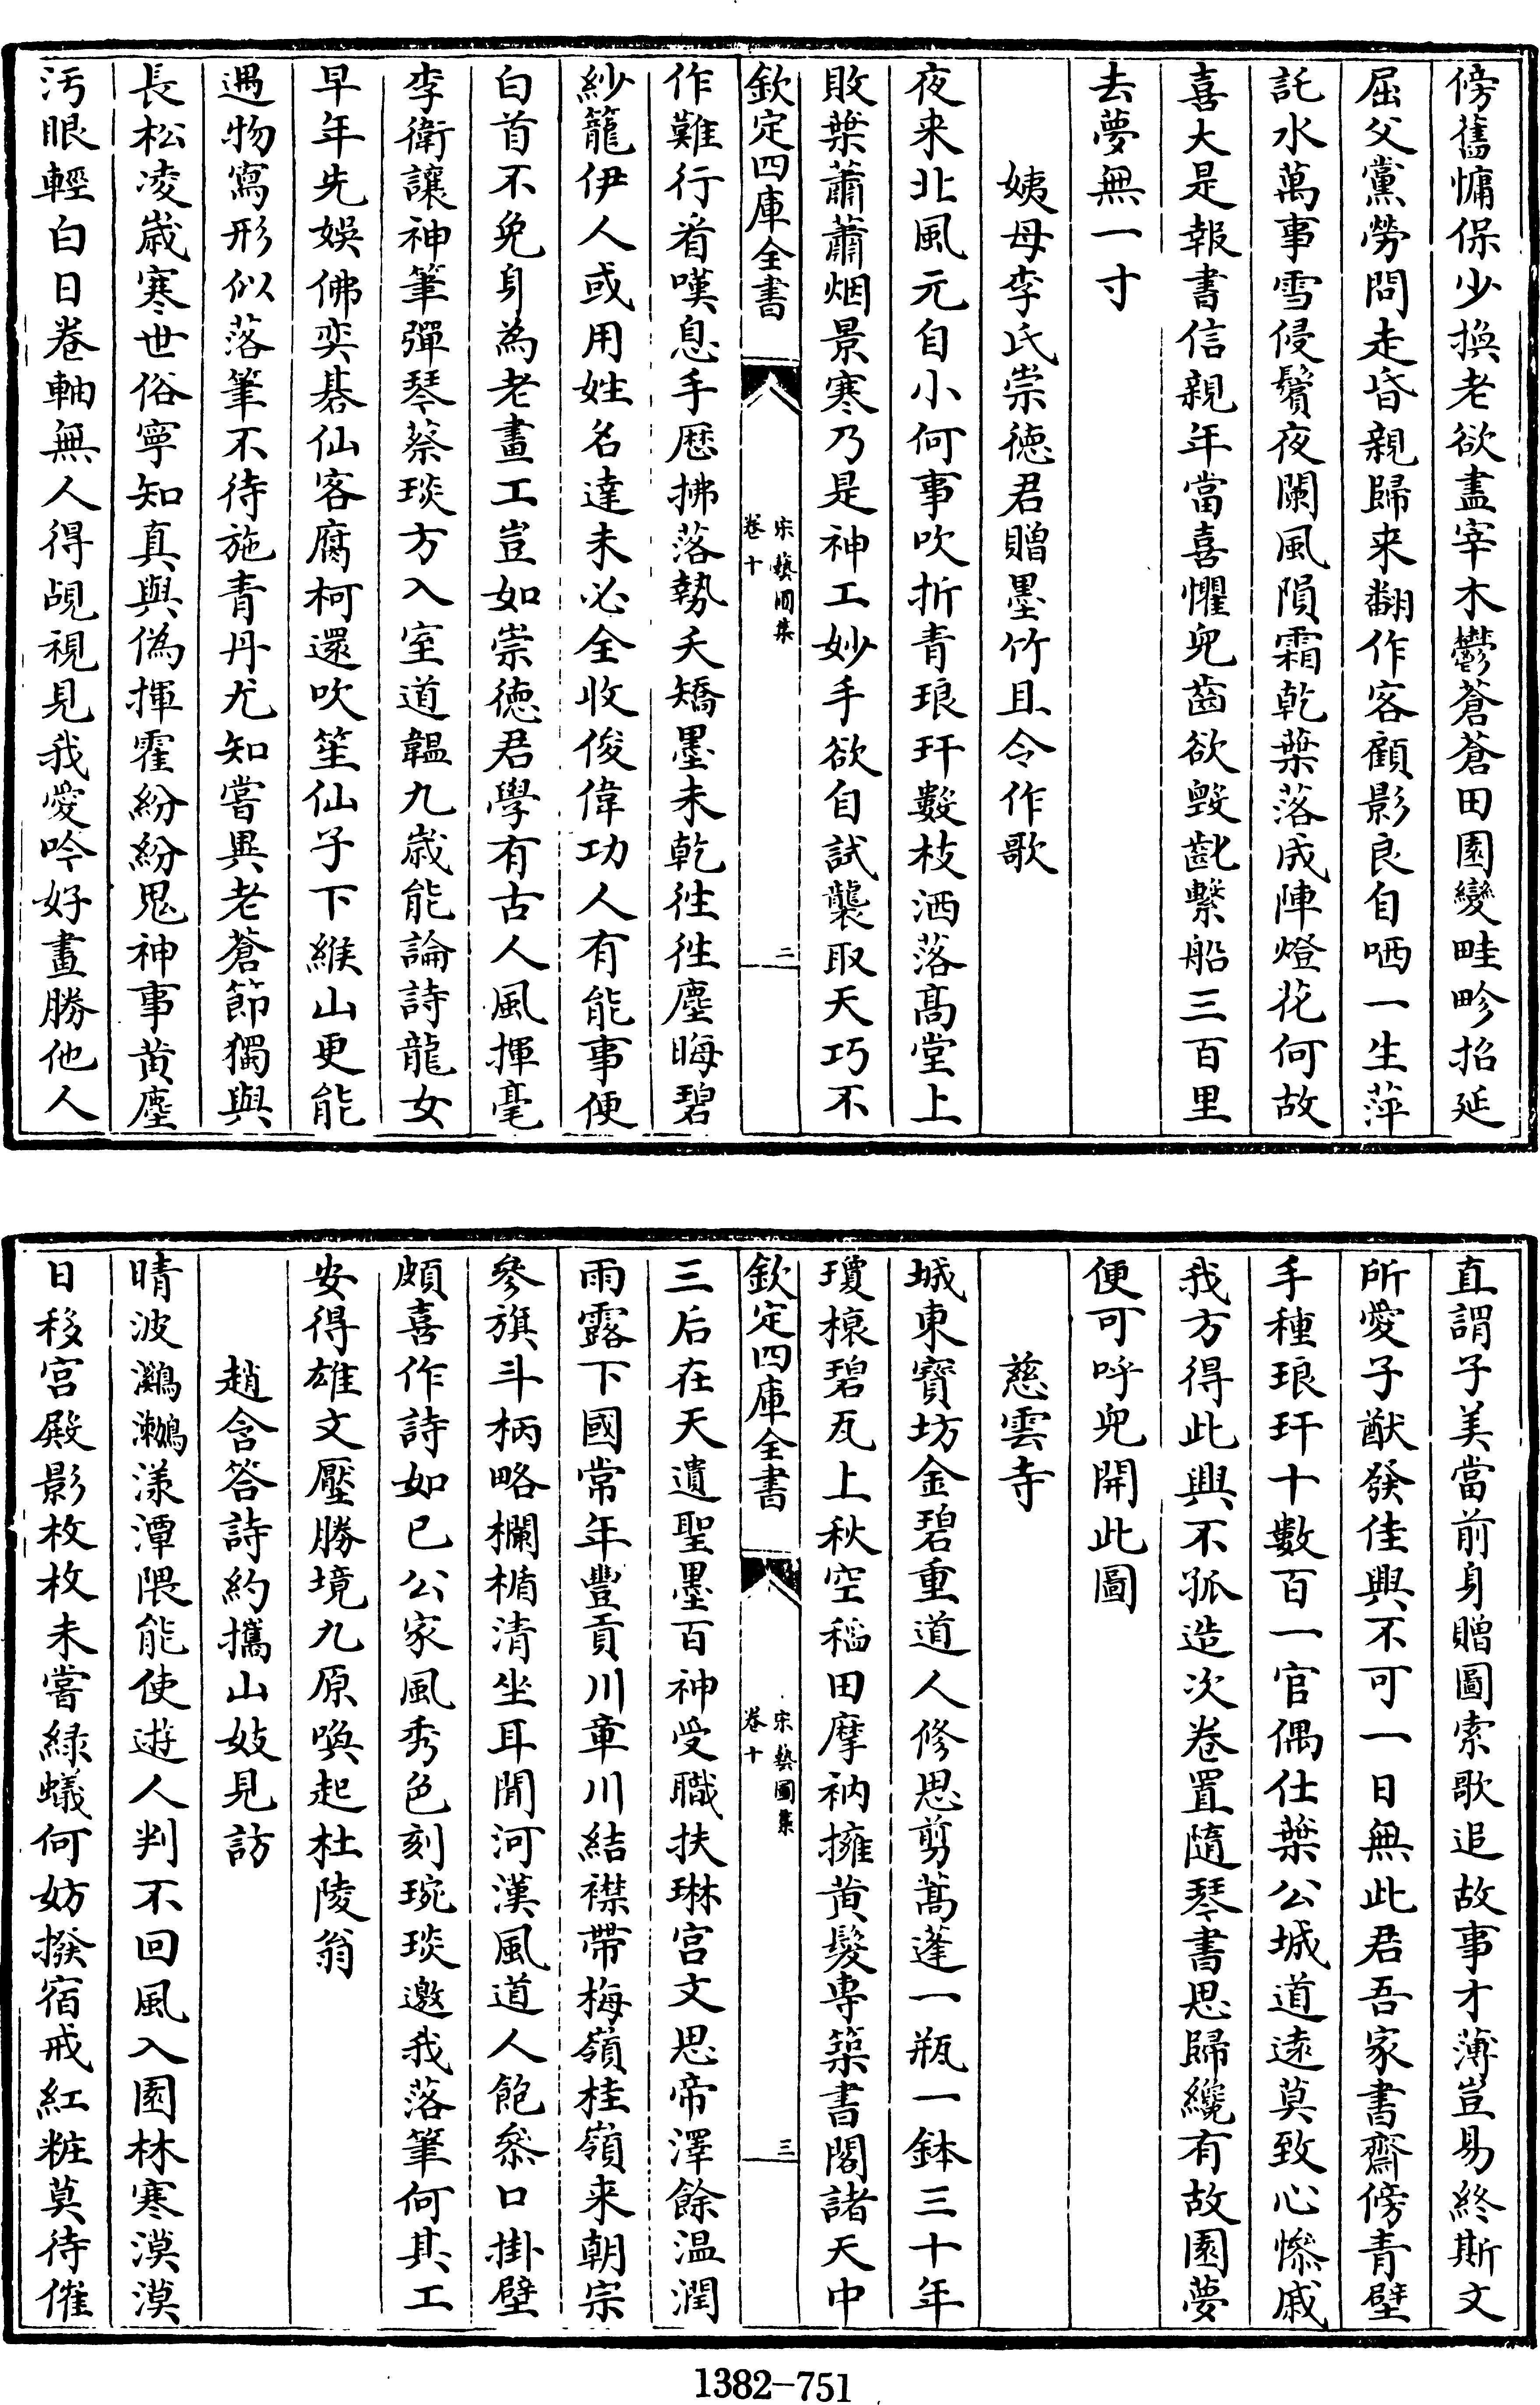 傍舊慵保少換老欲盡宰木鬱蒼蒼田園變畦畛招延
屈父黨勞問走昏親歸来翻作客顧影良自哂一生萍
託水萬事雪侵鬢夜闌風隕霜乾葉落成陣燈花何故
喜大是報書信親年當喜懼兒齒欲毀齔繫船三百里
去夢無一寸
姨母李氏崇徳君贈墨竹且令作歌
夜来北風元自小何事吹折青琅玕數枝洒落髙堂上
敗葉蕭蕭烟景寒乃是神工妙手欲自試襲取天巧不
欽定四庫全書
宋藝圃集
卷十
二
作難行看嘆息手歴拂落勢夭矯墨未乾徃徃塵晦碧
紗籠伊人或用姓名達未必全收俊偉功人有能事便
白首不免身為老畫工豈如崇徳君學有古人風揮毫
李衛讓神筆彈琴蔡琰方入室道韞九歳能論詩龍女
早年先娛佛奕碁仙客腐柯還吹笙仙子下緱山更能
遇物寫形似落筆不待施青丹尤知嘗異老蒼節獨與
長松凌歳寒世俗寧知真與偽揮霍紛紛鬼神事黄塵
汚眼輕白日卷軸無人得覘視見我愛吟好畫勝他人
直謂子美當前身贈圖索歌追故事才薄豈易終斯文
所愛子猷發佳興不可一日無此君吾家書齋傍青壁
手種琅玕十數百一官偶仕葉公城道逺莫致心慘戚
我方得此興不孤造次卷置隨琴書思歸纔有故園夢
便可呼兒開此圖
慈雲寺
城東寳坊金碧重道人修思剪蒿蓬一瓶一鉢三十年
瓊榱碧瓦上秋空稻田摩衲擁黄髮専築書閣諸天中
欽定四庫全書
宋藝圃集
卷十
三
三后在天遺聖墨百神受職扶琳宫文思帝澤餘温潤
雨露下國常年豐貢川章川結襟帶梅嶺桂嶺来朝宗
參旗斗柄略欄楯清坐耳聞河漢風道人飽叅口掛壁
頗喜作詩如已公家風秀色刻琬琰邀我落筆何其工
安得雄文壓勝境九原喚起杜陵翁
趙含答詩約攜山妓見訪
晴波鸂𪄠漾潭隈能使遊人判不回風入園林寒漠漠
日移宫殿影枚枚未嘗緑蟻何妨撥宿戒紅粧莫待催
1382-751